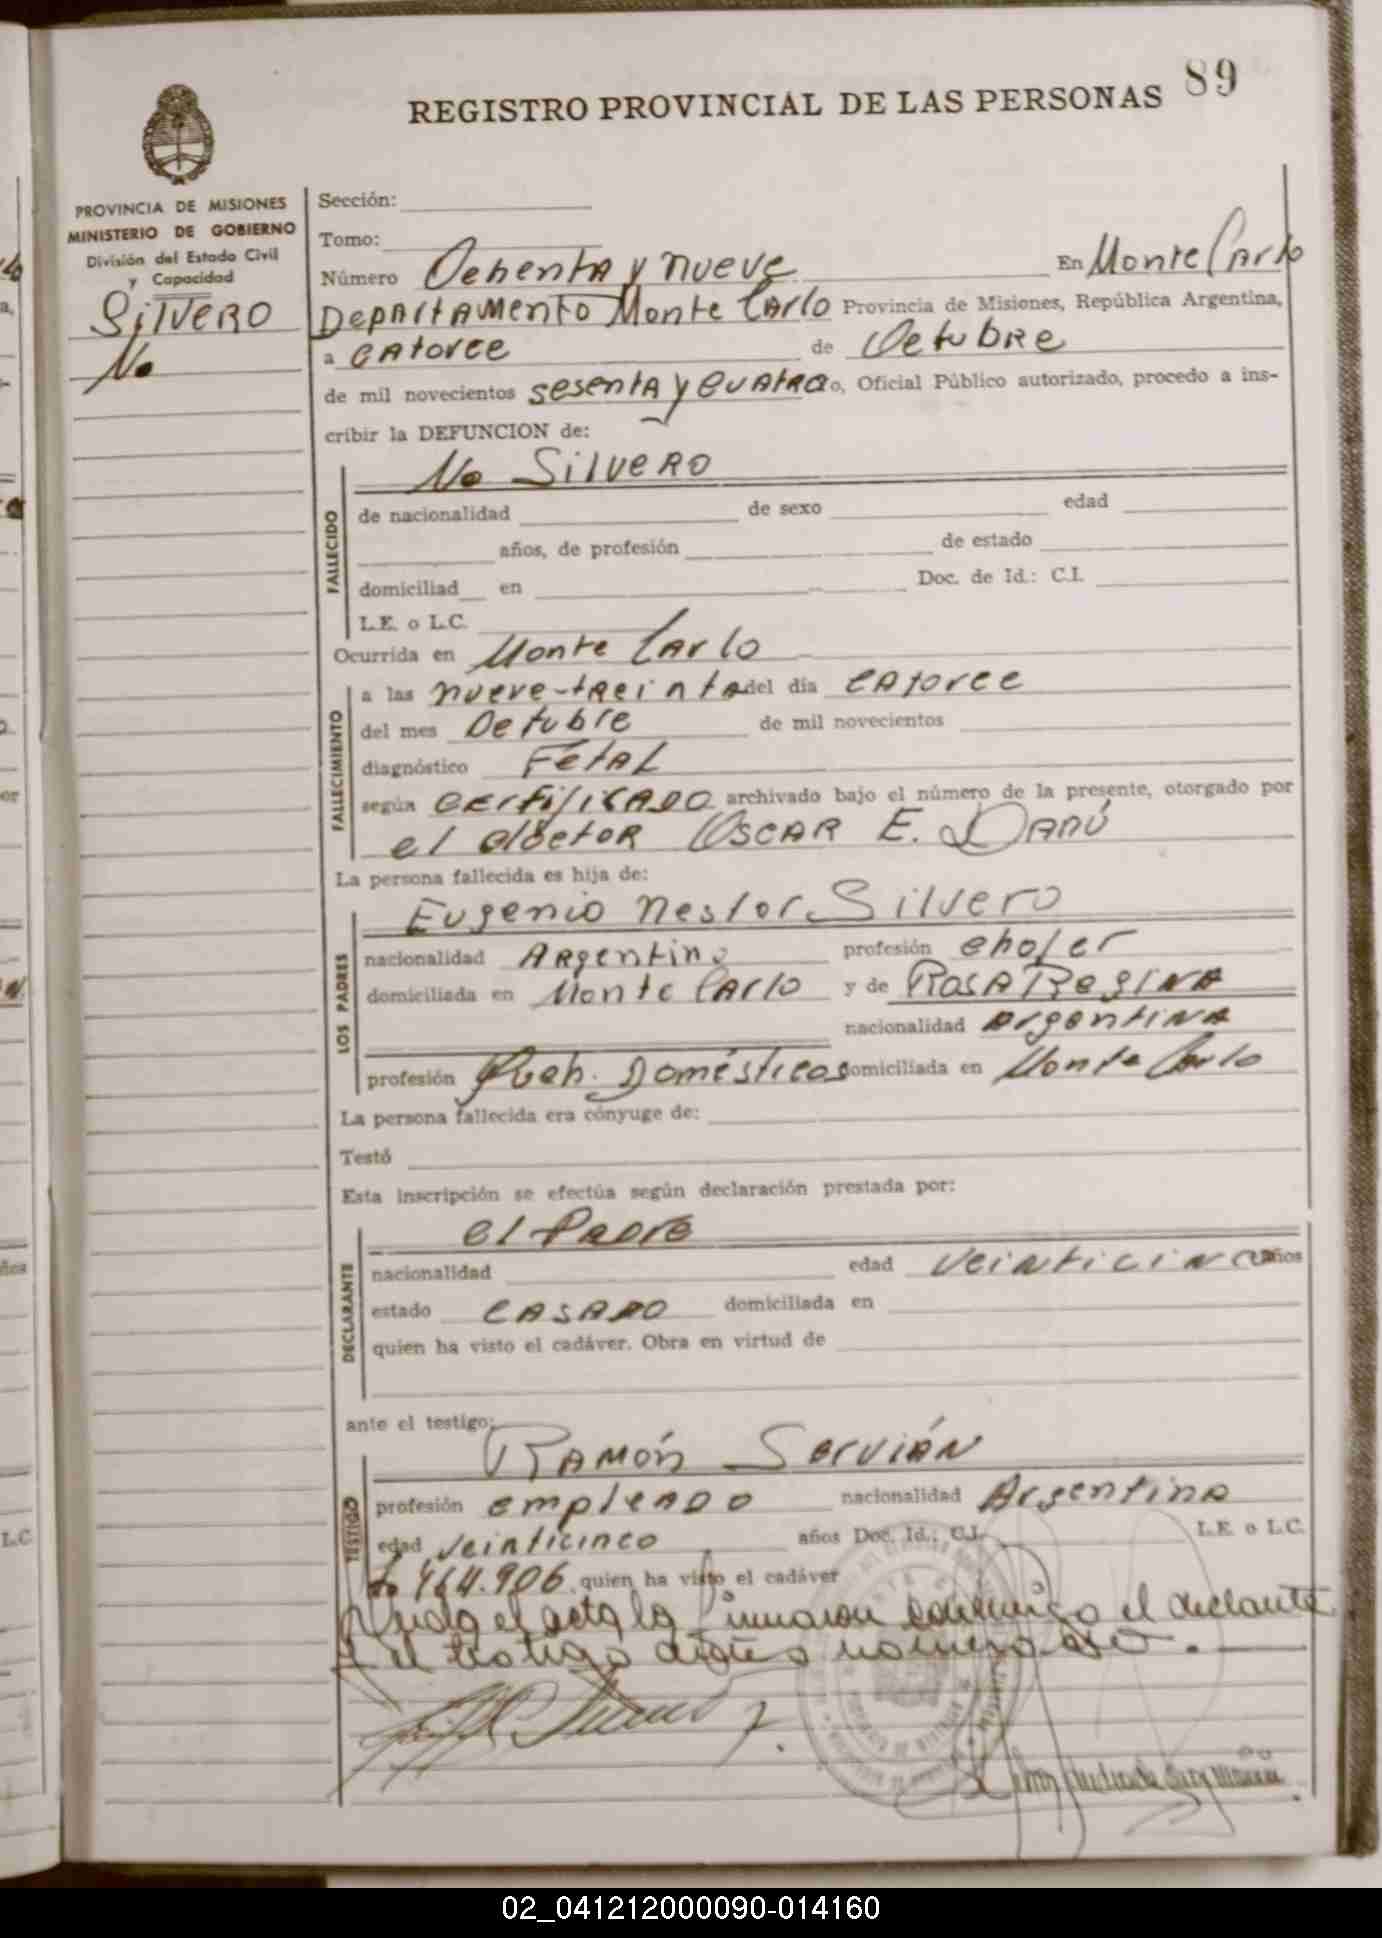 89
REGISTRO PROVINCIAL DE LAS PERSONAS
PROVINCIA DE MISIONES
MINISTERIO DE GOBIERNO
División del Estado Civil
y Capacidad
Silvero
No
Sección:
Tomo:
Número Ochenta y nueve En Monte Carlo
Departamento Monte Carlo Provincia de Misiones, República Argentina,
a catorce de Octubre
de mil novecientos sesenta y cuatro, Oficial Público autorizado, procedo a ins-
cribir la DEFUNCION de:
No Silvero
FALLECIDO
de nacionalidad de sexo edad
años, de profesión de estado
domiciliad en Doc. de Id.: C.I.
L.E. o L.C.
Ocurrida en Monte Carlo
FALLECIMIENTO
a las nueve-treinta del día catorce
del mes Octubre de mil novecientos
diagnóstico Fetal
según certificado archivado bajo el número de la presente, otorgado por
el doctor Oscar E. Danú
La persona fallecida es hija de:
LOS PADRES
Eugenio Nestor Silvero
nacionalidad Argentino profesión chofer
domiciliada en Monte Carlo y de Rosa Regina
nacionalidad argentina
profesión Queh. Domésticos domiciliada en Monte Carlo
La persona fallecida era cónyuge de:
Testó
Esta inscripción se efectúa según declaración prestada por:
DECLARANTE
el Padre
nacionalidad edad veinticinco años
estado casado domiciliada en
quien ha visto el cadáver. Obra en virtud de
ante el testigo:
Ramón Servián
TESTIGO
profesión empleado nacionalidad Argentina
edad veinticinco años Doc. Id.: C.I. L.E. o L.C.
464.906 quien ha visto el cadáver
el acta la firmaron conmigo el declarante
y el testigo
02_041212000090-014160